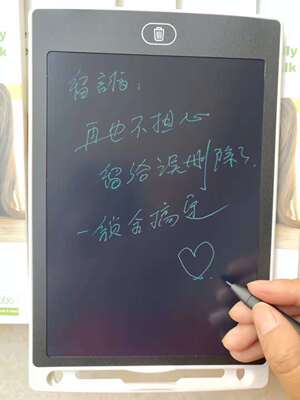 留言啦:
再也不担心
留给误删除了.
一锁全搞定